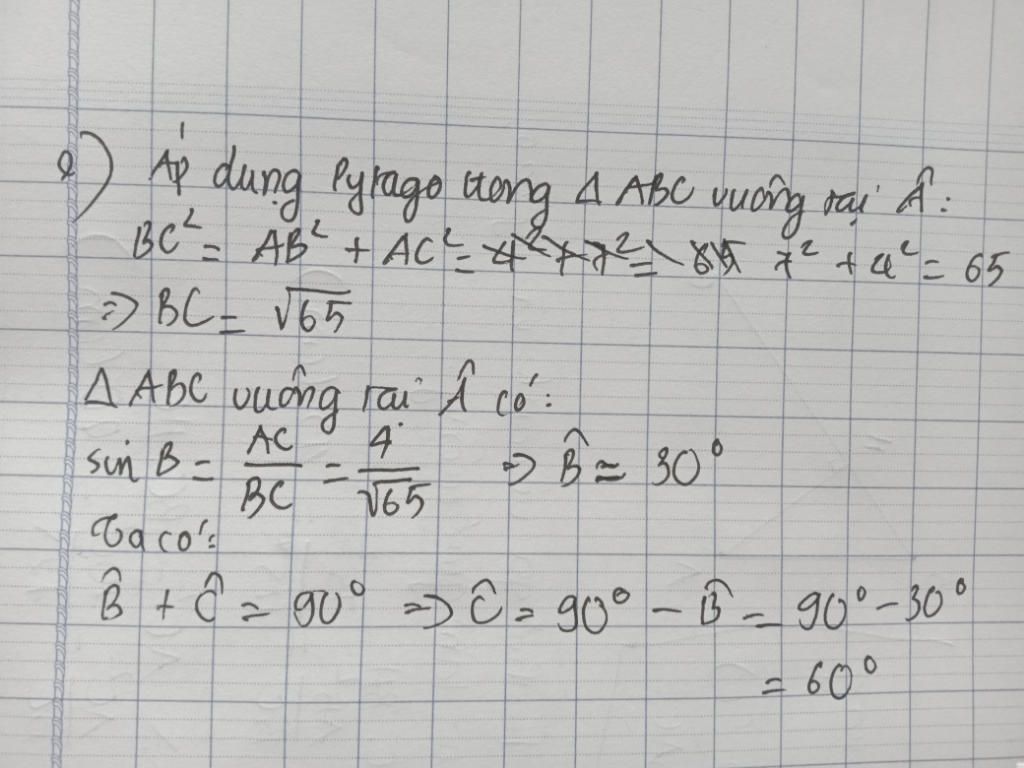 a) Áp dụng Pytago trong Δ ABC vuông tại Â:
BC² = AB² + AC² = 7² + 4² = 65
=> BC = √65
Δ ABC vuông tại  có:
sin B = AC/BC = 4/√65 => B̂ ≈ 30°
Ta có:
B̂ + Ĉ = 90° => Ĉ = 90° - B̂ = 90° - 30°
= 60°